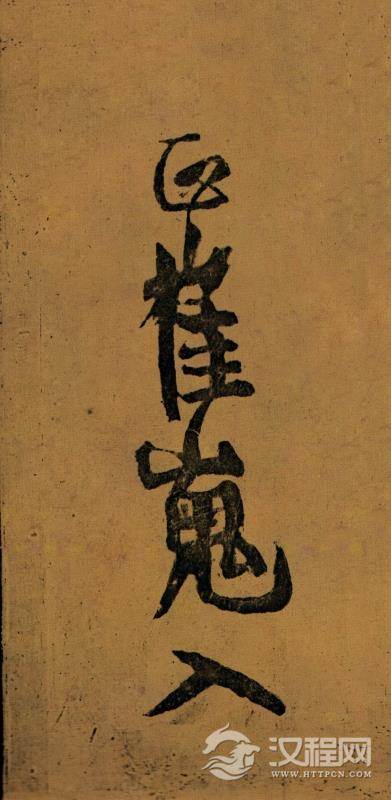 崔嵬入
汉程网
WWW.HTTPCN.COM